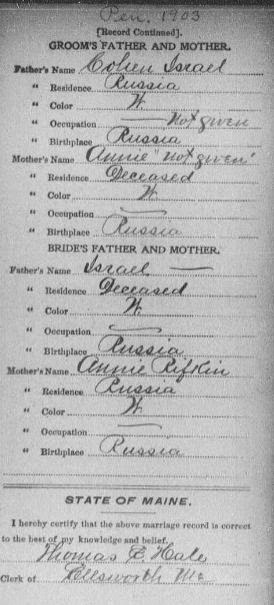 Pen. 1903
[Record Continued].
GROOM'S FATHER AND MOTHER.
Father's Name Cohen Israel
" Residence Russia
" Color W.
" Occupation — Not given
" Birthplace Russia
Mother's Name Annie "Not given"
" Residence Deceased
" Color W.
" Occupation —
" Birthplace Russia
BRIDE'S FATHER AND MOTHER.
Father's Name Israel —
" Residence Deceased
" Color W.
" Occupation —
" Birthplace Russia
Mother's Name Annie Rifkin
" Residence Russia
" Color W.
" Occupation —
" Birthplace Russia
STATE OF MAINE.
I hereby certify that the above marriage record is correct
to the best of my knowledge and belief.
Thomas E Hale
Clerk of Ellsworth Me